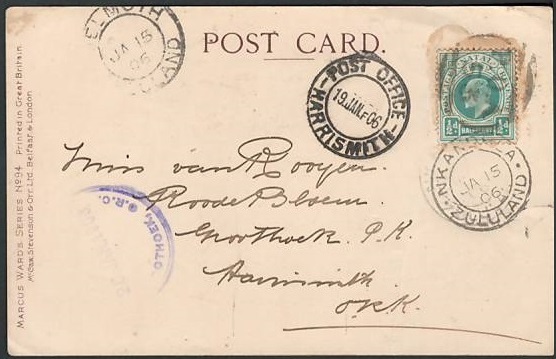 ELMOTH
JA 15
06
ZULULAND
POST CARD.
POST OFFICE
19 JAN. 06
HARRISMITH
NATAL
POSTAGE
REVENUE
½d
½d
NKAN
A
JA 15
06
ZULULAND
Miss van Rooyen
Roode Bloem
Groothoek P.K.
Harrismith
O.R.C.
OTHOEK, O.R.C.
MARCUS WARD'S SERIES No 94. Printed in Great Britain.
McCaw, Stevenson & Orr, Ltd. Belfast & London